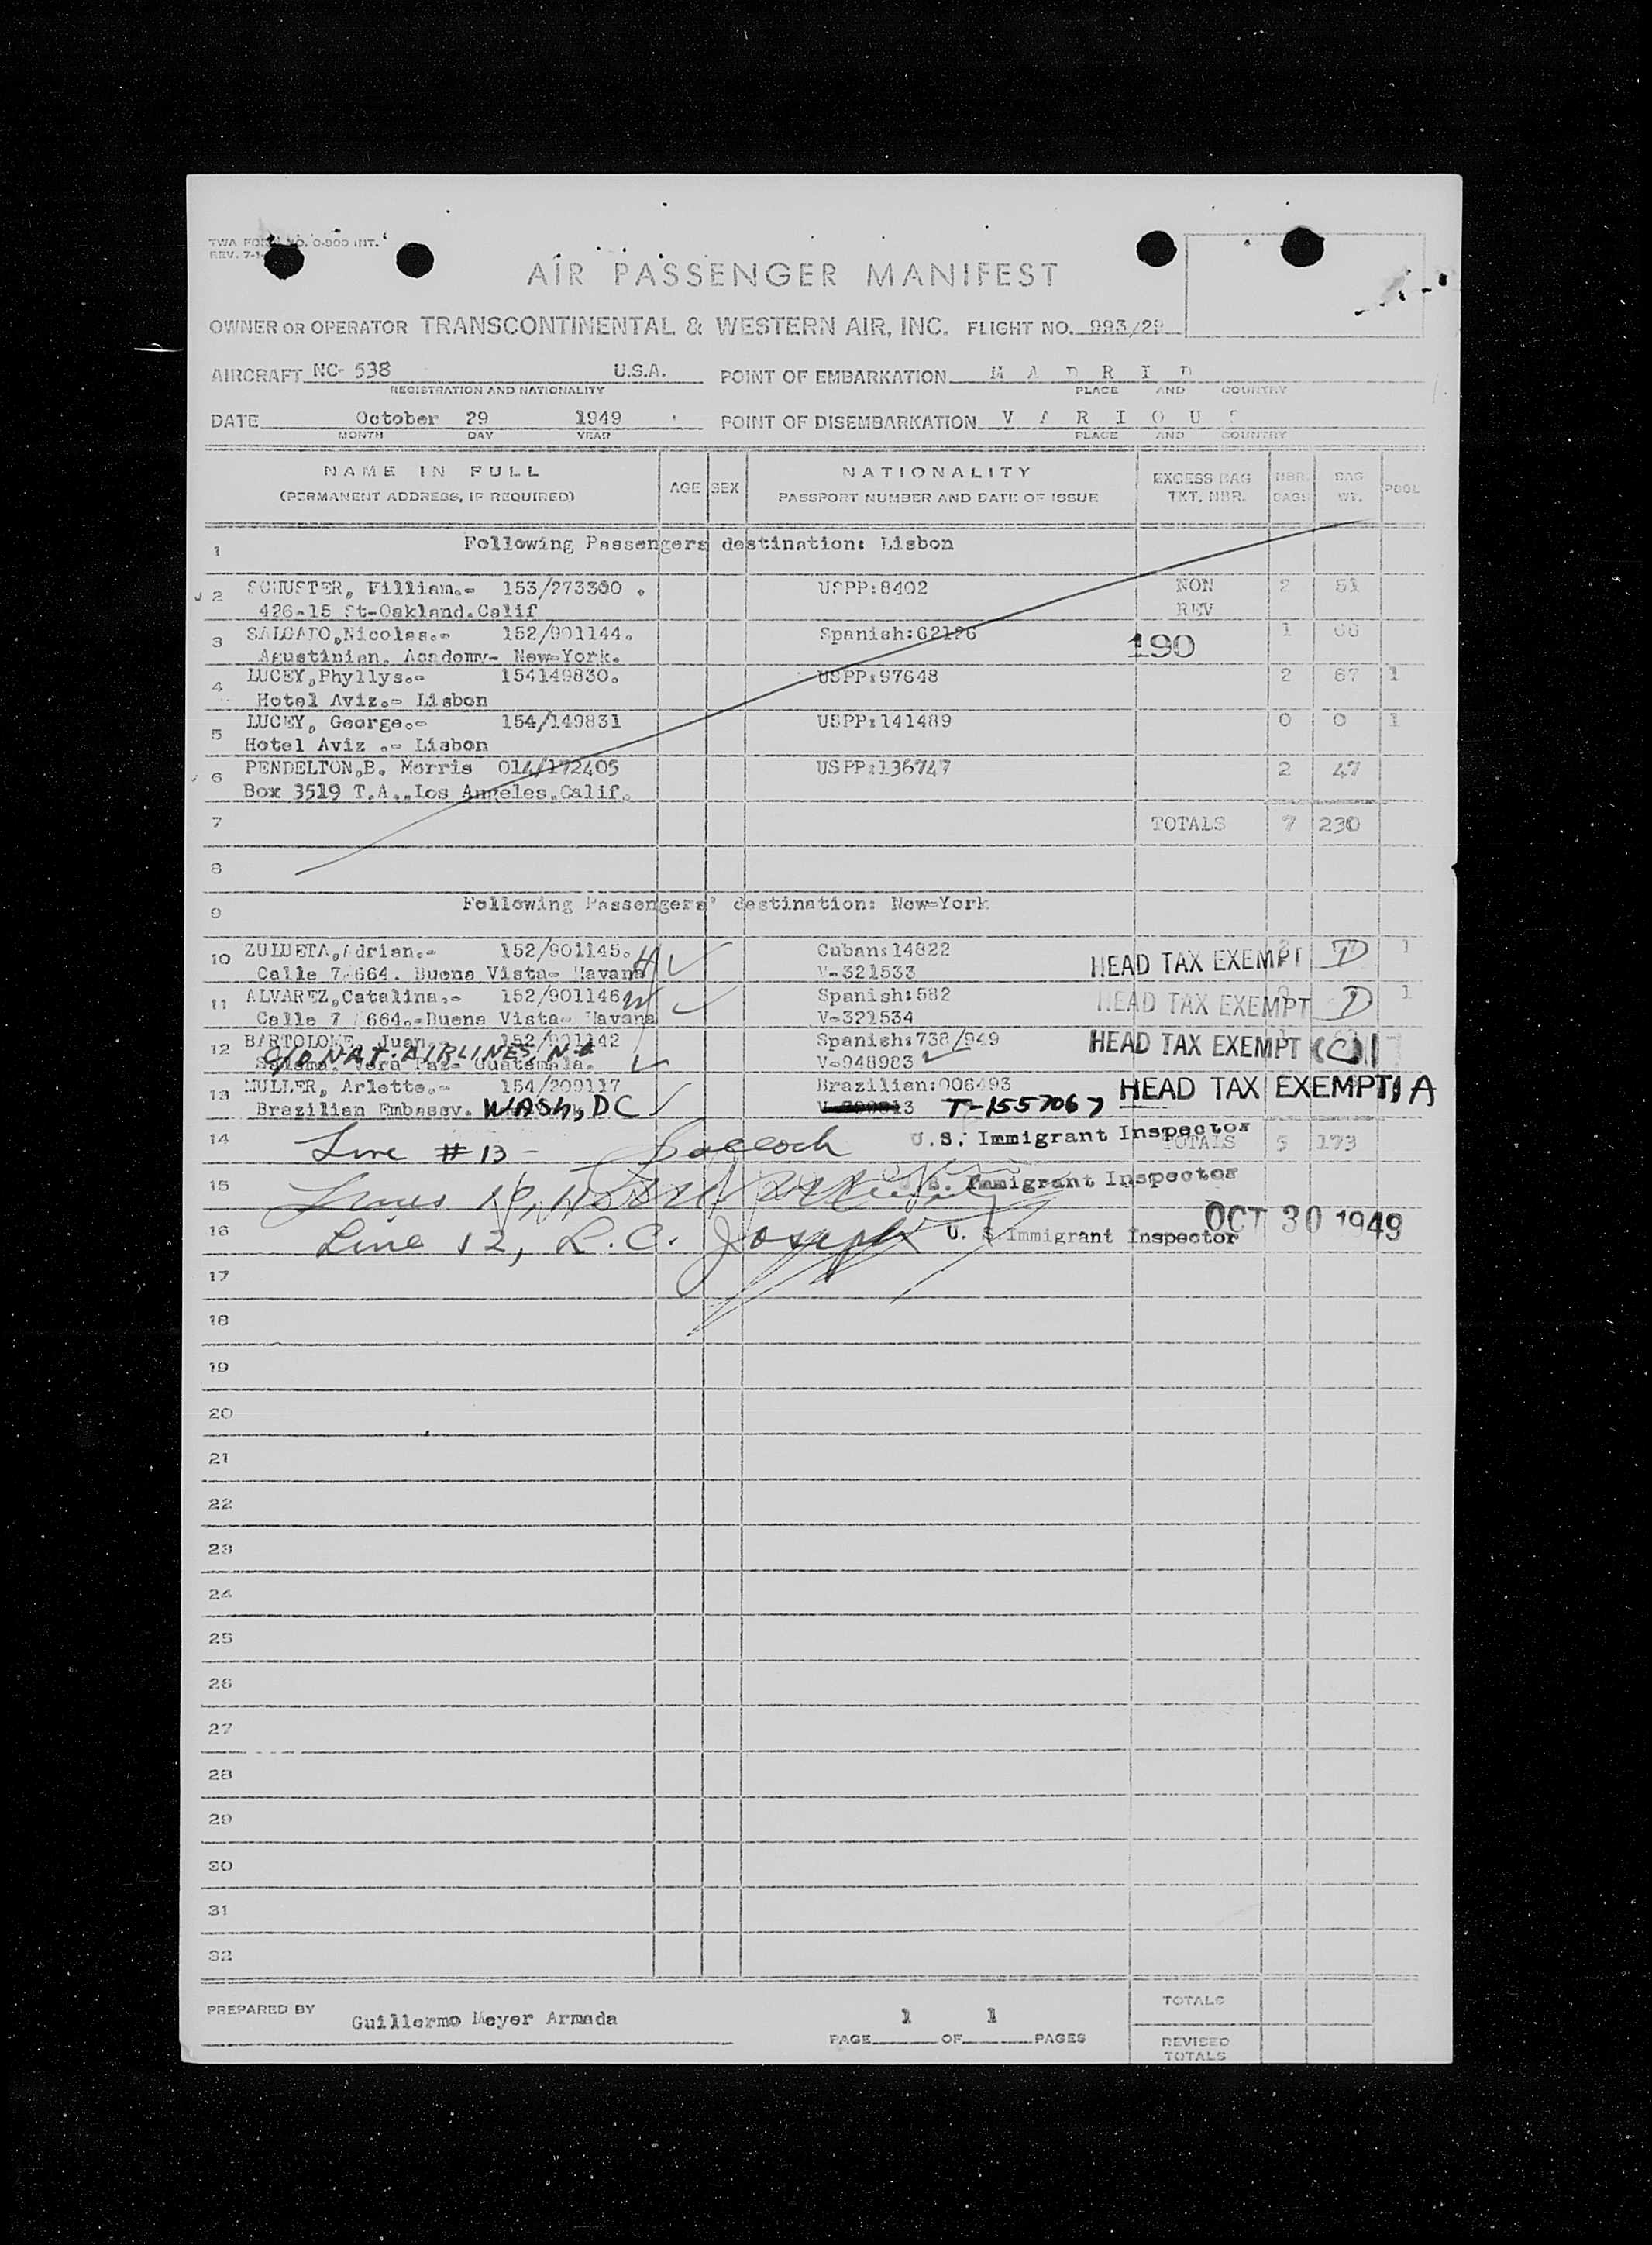 TWA FORM NO. O-900 INT.
REV. 7-1-
AIR PASSENGER MANIFEST
OWNER OR OPERATOR TRANSCONTINENTAL & WESTERN AIR, INC. FLIGHT NO. 993/29
AIRCRAFT NC- 538 U.S.A. POINT OF EMBARKATION M A D R I D
REGISTRATION AND NATIONALITY PLACE AND COUNTRY
DATE October 29 1949 POINT OF DISEMBARKATION V A R I O U S
MONTH DAY YEAR PLACE AND COUNTRY
NAME IN FULL
(PERMANENT ADDRESS, IF REQUIRED)
AGE SEX
NATIONALITY
PASSPORT NUMBER AND DATE OF ISSUE
EXCESS BAG
TKT. NBR.
NBR.
BAGS
BAG
WT.
POOL
1 Following Passengers destination: Lisbon
2 SCHUSTER, William.- 153/273300 . USPP:8402 NON 2 51
426-15 St-Oakland.Calif REV
3 SALGADO,Nicolas.- 152/901144. Spanish:62126 190 1 66
Agustinian. Academy- New-York.
4 LUCEY,Phyllys.- 154149830. USPP:97648 2 67 1
Hotel Aviz.- Lisbon
5 LUCEY, George.- 154/149831 USPP:141489 0 0 1
Hotel Aviz .- Lisbon
6 PENDELTON,B. Morris 014/172405 USPP:136747 2 47
Box 3519 T.A..Los Angeles.Calif.
7 TOTALS 7 230
8
9 Following Passengers' destination: New-York
10 ZULUETA,Adrian.- 152/901145. Cuban:14822 HEAD TAX EXEMPT 1
Calle 7 664. Buena Vista- Havana V-321533
11 ALVAREZ,Catalina.- 152/901146 Spanish:582 HEAD TAX EXEMPT 1
Calle 7 664.-Buena Vista- Havana V-321534
12 BARTOLOME, Juan 152/901142 Spanish:738/949 HEAD TAX EXEMPT (C)
C/O NAT. AIRLINES, N.Y.
Salama. Vera Paz- Guatemala. V-948983
13 MULLER, Arlette.- 154/209117 Brazilian:006493 HEAD TAX EXEMPT 1 A
Brazilian Embassy. WASH, DC T-1557067
14 Line # 13 - U.S. Immigrant Inspector TOTALS 5 173
15 Lines 10, 11 U.S. Immigrant Inspector
16 Line 12, L. C. Joseph U. S Immigrant Inspector OCT 30 1949
17
18
19
20
21
22
23
24
25
26
27
28
29
30
31
32
PREPARED BY Guillermo Meyer Armada PAGE 1 OF 1 PAGES
TOTALS
REVISED
TOTALS